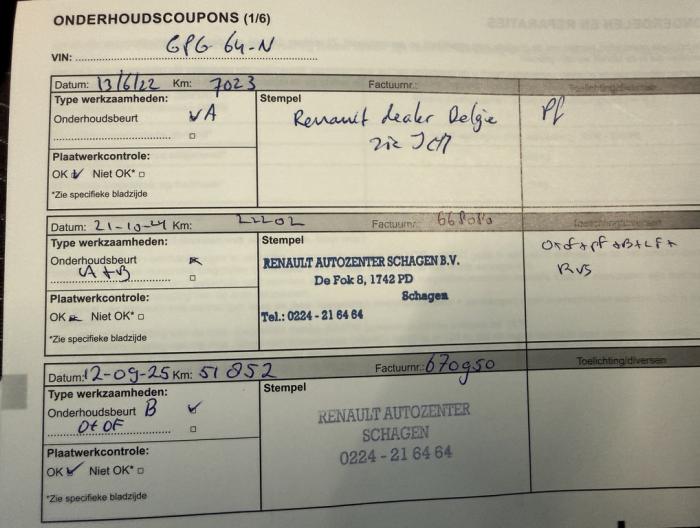 ONDERHOUDSCOUPONS (1/6)
VIN: GPG 64-N
Datum: 13/6/22 Km: 7023 Factuurnr.:
Type werkzaamheden: Stempel
Onderhoudsbeurt A Renault dealer Belgie Pf
zie
Plaatwerkcontrole:
OK Niet OK*
*Zie specifieke bladzijde
Datum: 21-10-24 Km: 22202 Factuurnr.:
Type werkzaamheden: Stempel
Onderhoudsbeurt RENAULT AUTOZENTER SCHAGEN B.V.
A+B De Fok 8, 1742 PD RVS
Schagen
Plaatwerkcontrole:
OK Niet OK* Tel.: 0224 - 21 64 64
*Zie specifieke bladzijde
Datum: 12-09-25 Km: 51852 Factuurnr.: 670950 Toelichting/diversen
Type werkzaamheden: Stempel
Onderhoudsbeurt B RENAULT AUTOZENTER
O+OF SCHAGEN
0224 - 21 64 64
Plaatwerkcontrole:
OK Niet OK*
*Zie specifieke bladzijde